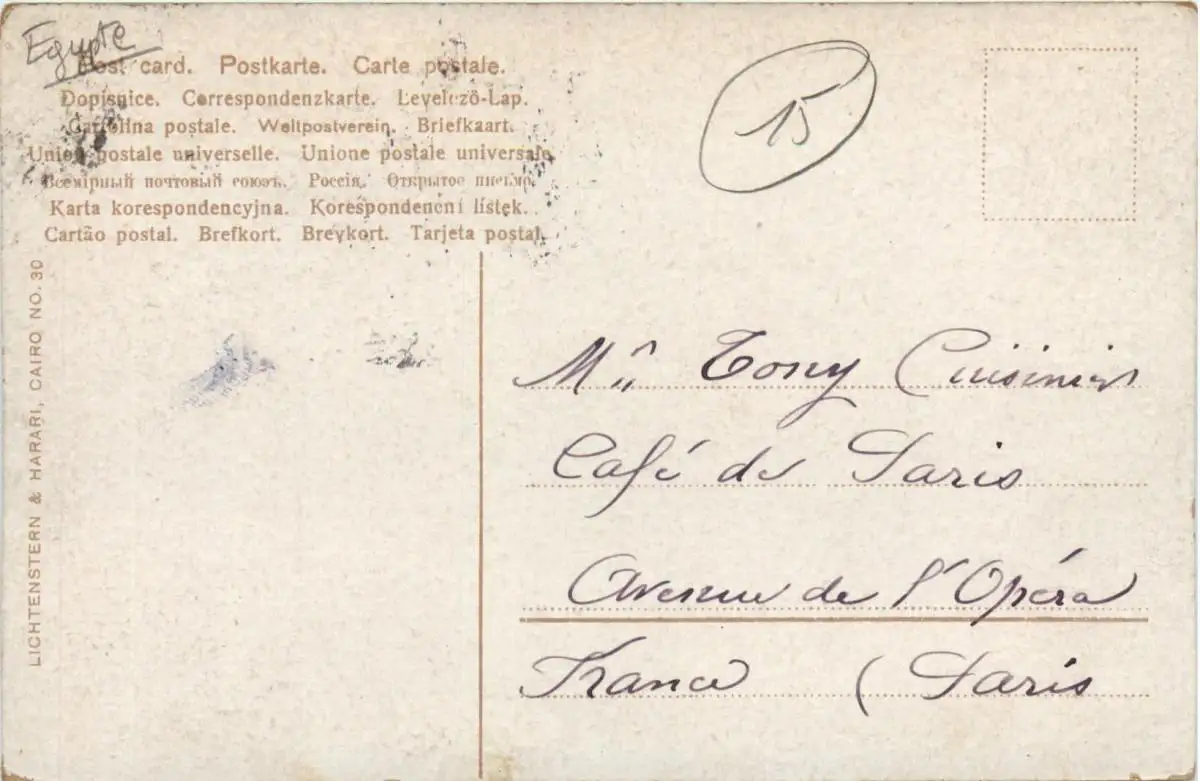 Egypte
Post card. Postkarte. Carte postale.
Dopisnice. Correspondenzkarte. Levelező-Lap.
Cartolina postale. Weltpostverein. Briefkaart.
Union postale universelle. Unione postale universale.
Всемірный почтовый союзъ. Россія. Открытое письмо.
Karta korespondencyjna. Korespondenční lístek.
Cartão postal. Brefkort. Brevkort. Tarjeta postal.
15
LICHTENSTERN & HARARI, CAIRO NO. 30
Tony Cuisinier
Café de Paris
Avenue de l'Opéra
France (Paris